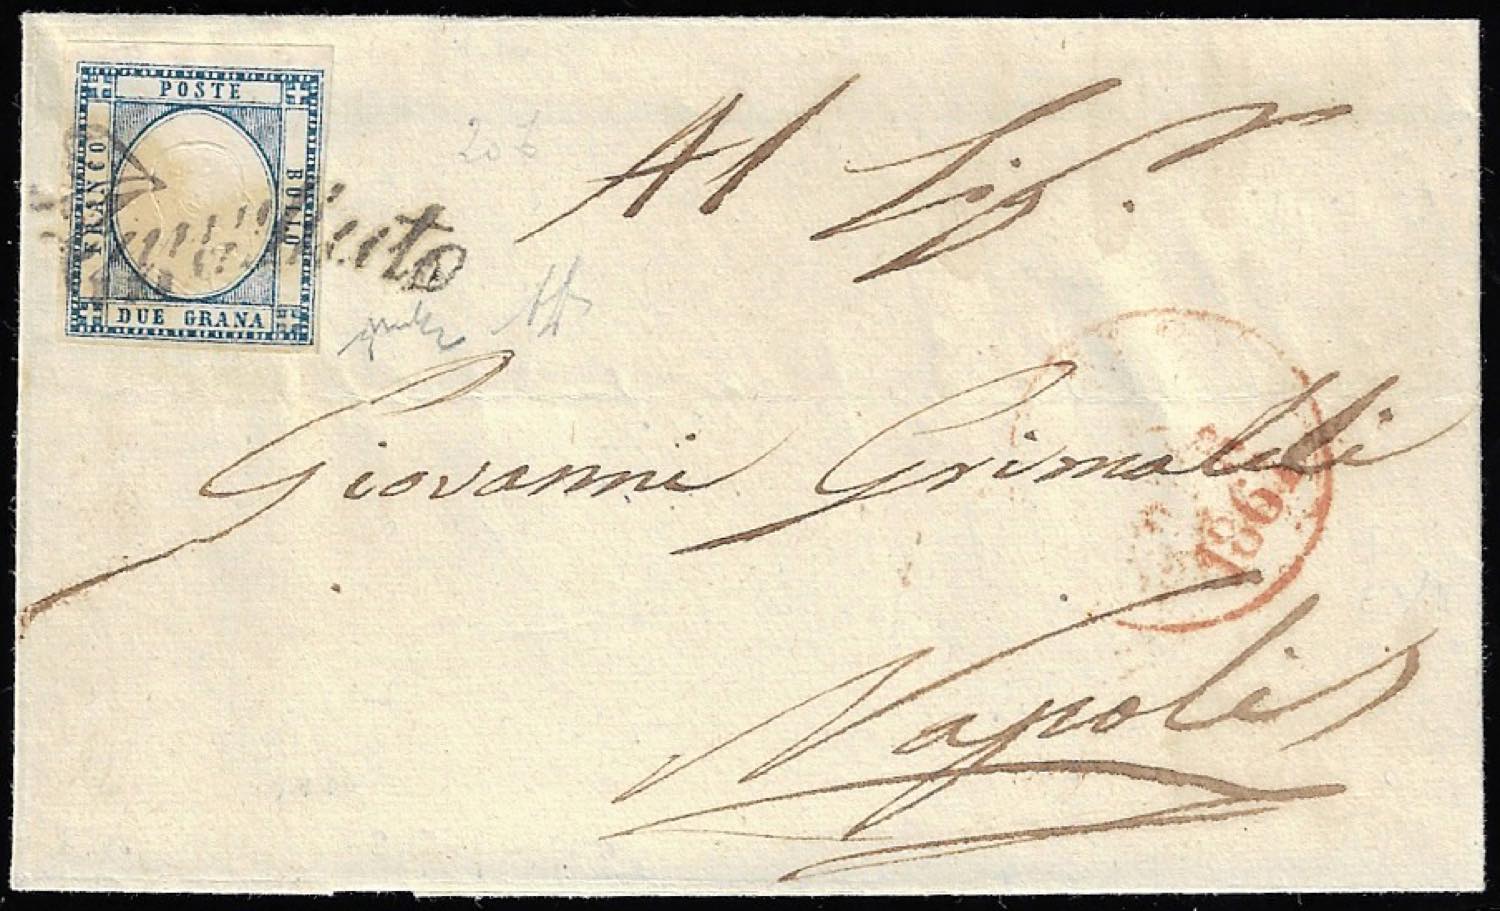 POSTE
FRANCO
BOLLO
DUE GRANA
20 b
Al Sig.r
Giovanni Grimaldi
1861
Napoli